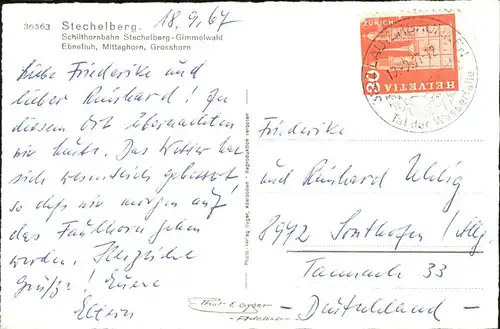 36563 Stechelberg.
Schilthornbahn Stechelberg-Gimmelwald
Ebnefluh, Mittaghorn, Grosshorn
18.9.67
Liebe Friederike und
lieber Reinhard! In
diesem Ort übernachten
wir heute. Das Wetter hat
sich wesentlich gebessert,
so daß wir morgen auf
das Faulhorn gehen
werden. Herzliche
Grüße! Eure
Eltern
Photo - Verlag Gyger, Adelboden - Reproduktion verboten
ZÜRICH
HELVETIA
30
LAUTERBRUNNEN
Tal der Wasserfälle
Friederike
und Reinhard Uhlig
8972 Sonthofen / Allg.
33
- Deutschland -
Gyger
Adelboden